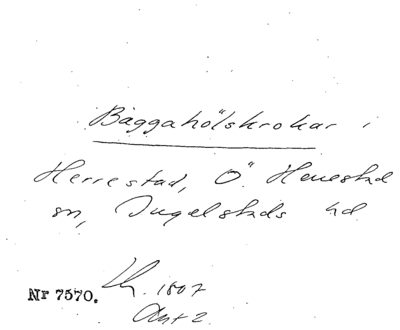 Baggahölskrokar i
Herrestad, Ö. Herrestad
sn, Ingelstads hd
Nr 7570. Lh. 1807
Akt 2